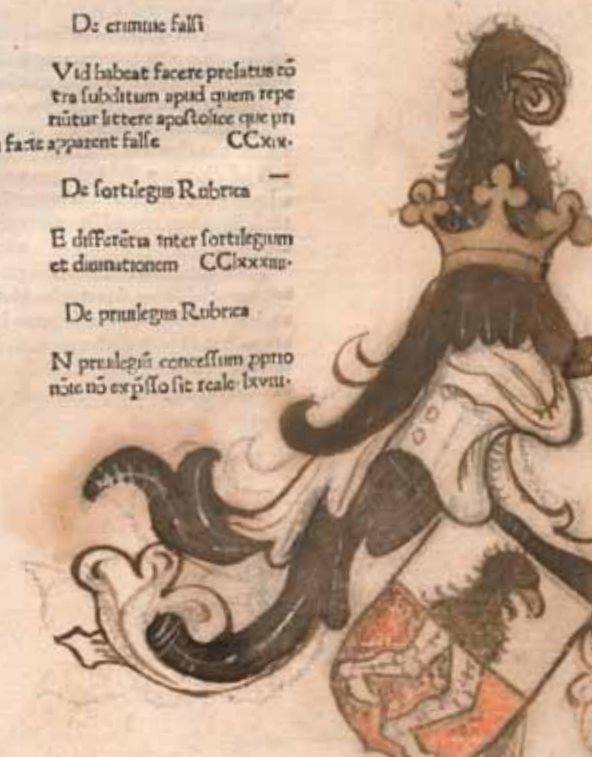 De crimine falsi
Vid habeat facere prelatus cō
tra subditum apud quem repe
riūtur littere apostolice que pri
facie apparent false CCxix.
De sortilegiis Rubrica
E differētia inter sortilegium
et diuinationem CClxxxiiii.
De priuilegiis Rubrica
N preuilegiū concessum pprio
nōie nō exp̄sso sit reale lxviii.